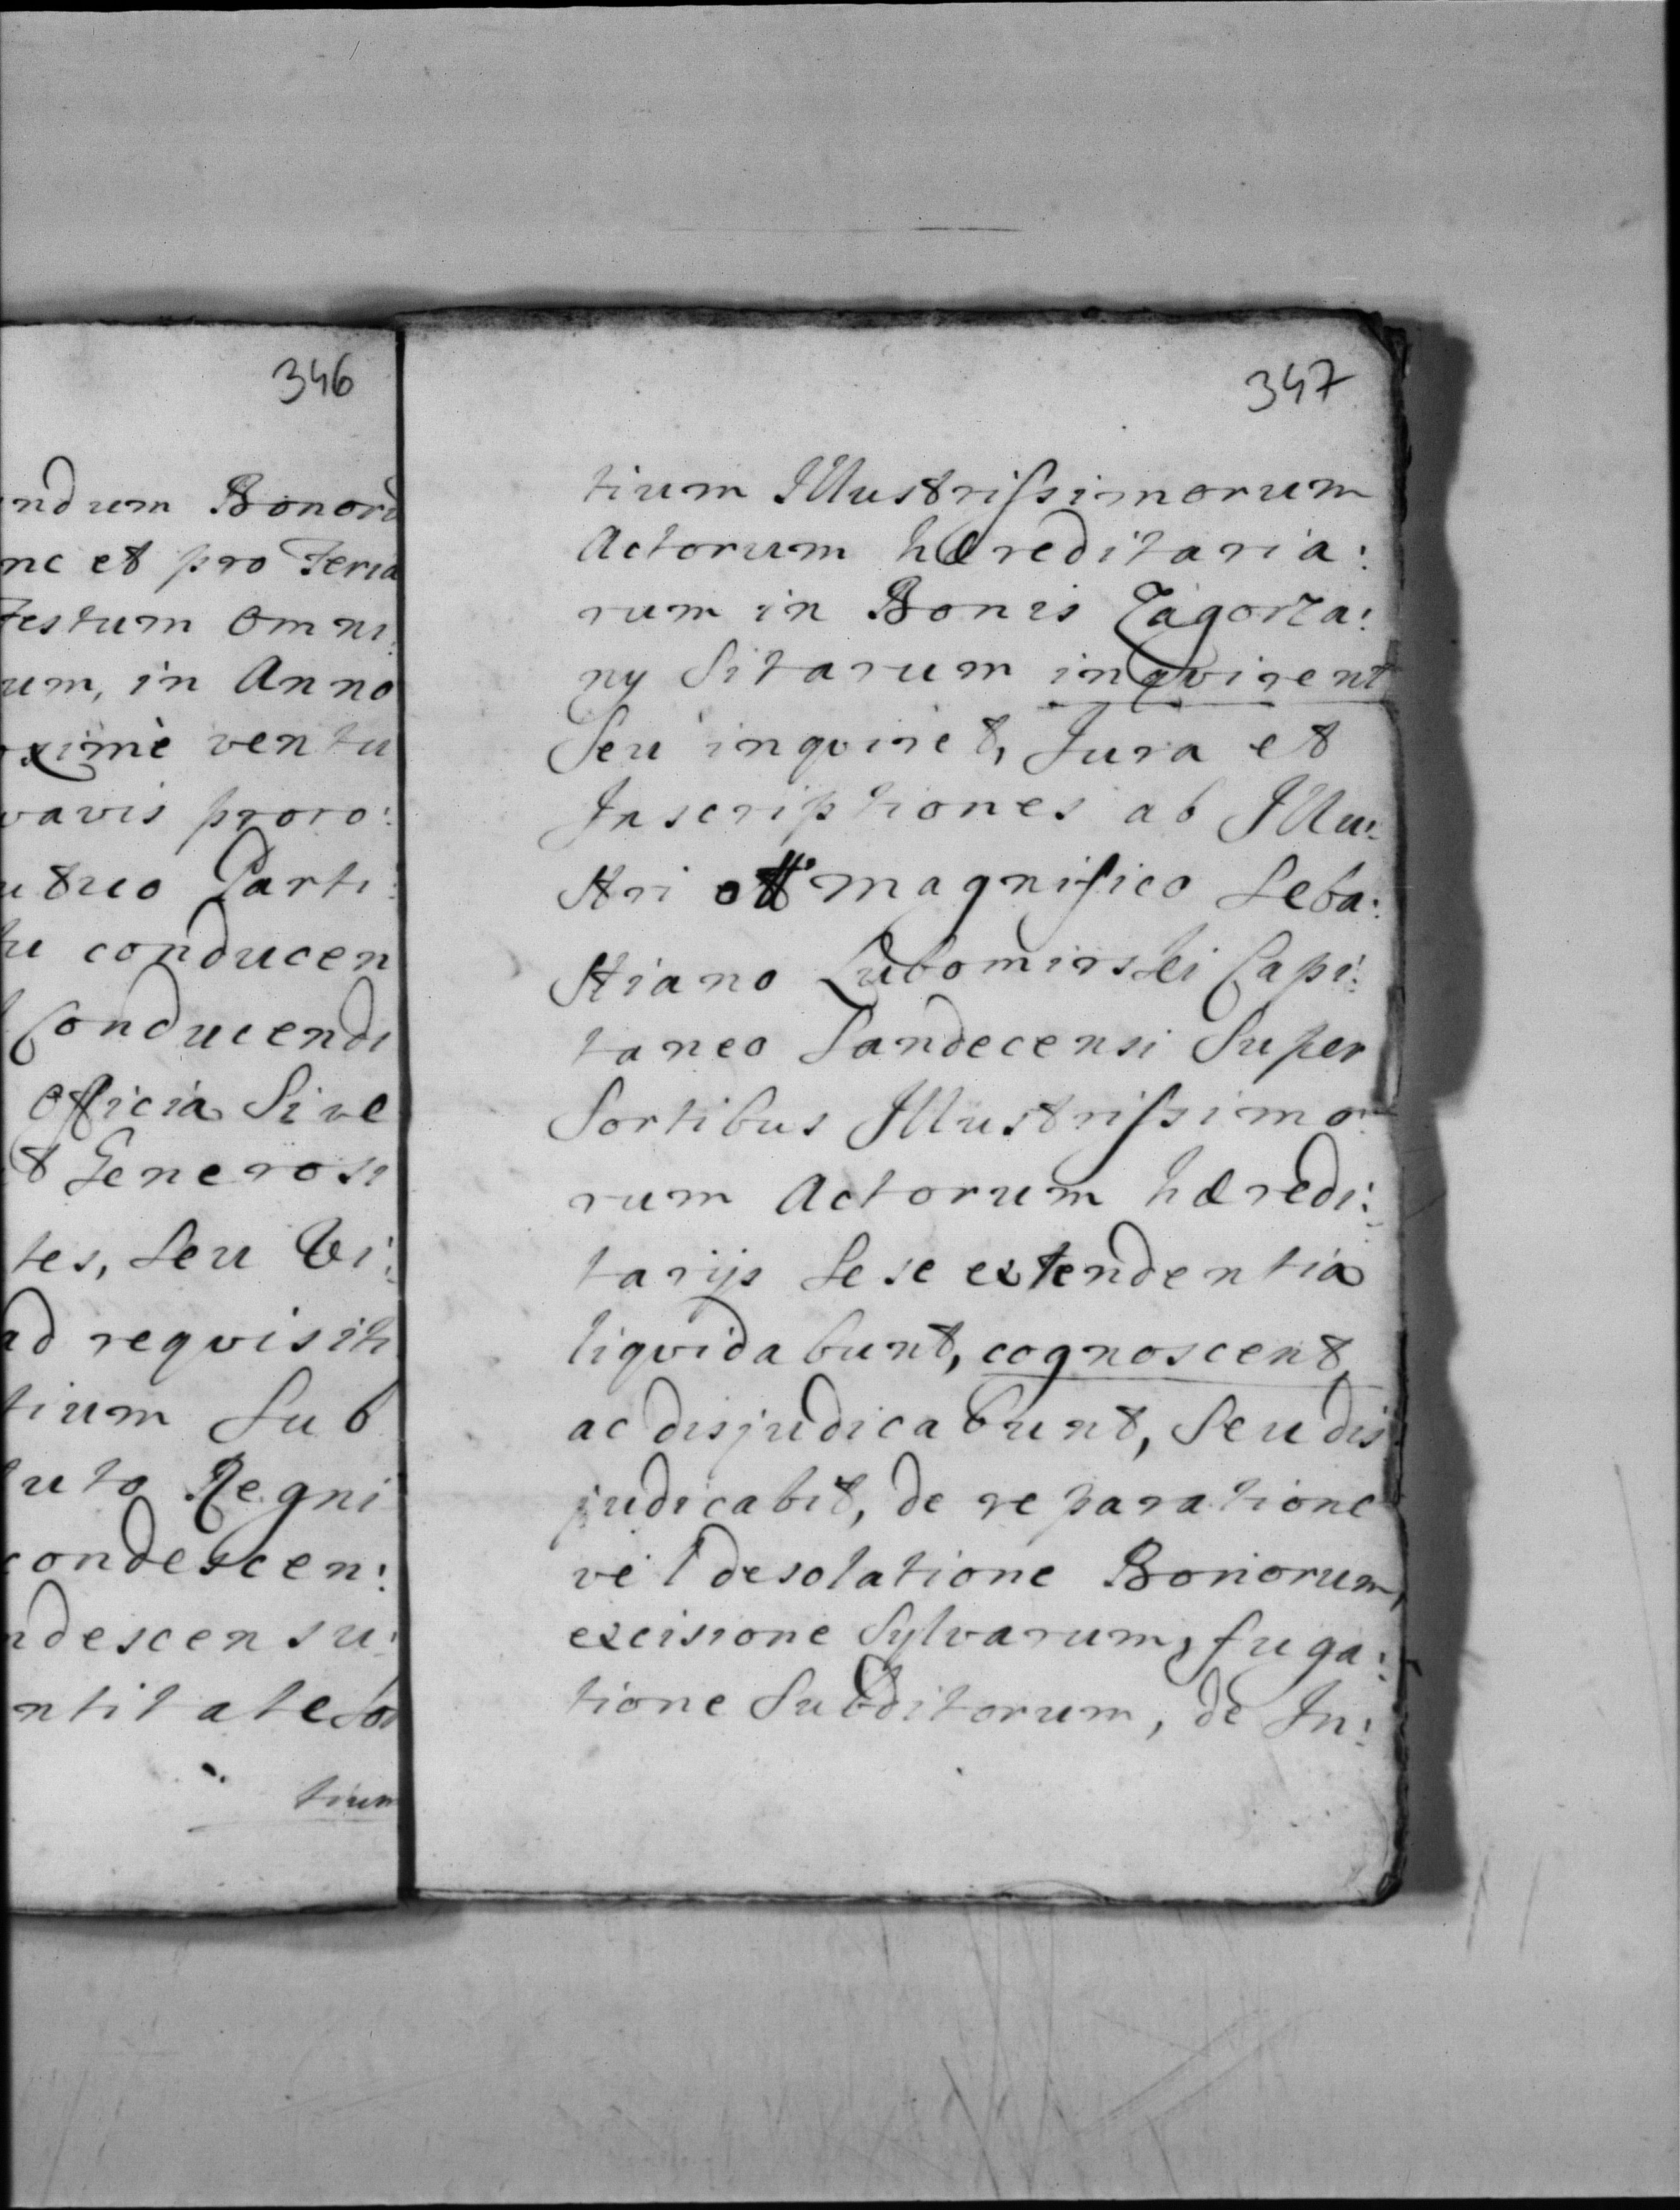 346
ndum Bonorū
nc et pro Feria
Festum Omni:
um, in Anno
oximè ventu
vavis proro:
utuo Parti:
tu conducen
Conducendi
Officia Sive
t Generosi
tes, Seu Vi:
ad requisiti
tium Sub
tuto Regni
condescen:
ndescensu:
ntitate Sor
tium
347
tium Illustrissimorum
Actorum hæreditaria:
rum in Bonis Zagorza:
ny Sitarum inqvirent
Seu inqviret, Jura et
Inscriptiones ab Illu:
stri et magnifico Seba:
stiano Lubomirski Capi:
taneo Sandecensi Super
Sortibus Illustrissimo
rum Actorum hæredi:
tarijs Sese extendentia
liqvidabunt, cognoscent,
ac disjudicabunt, Seu dis
judicabit, de reparatione
vel desolatione Bonorum,
excisione Sylvarum, fuga:
tione Subditorum, de In: